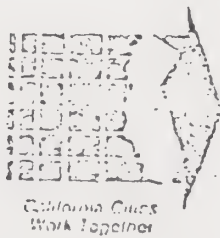 California Cities
Work Together